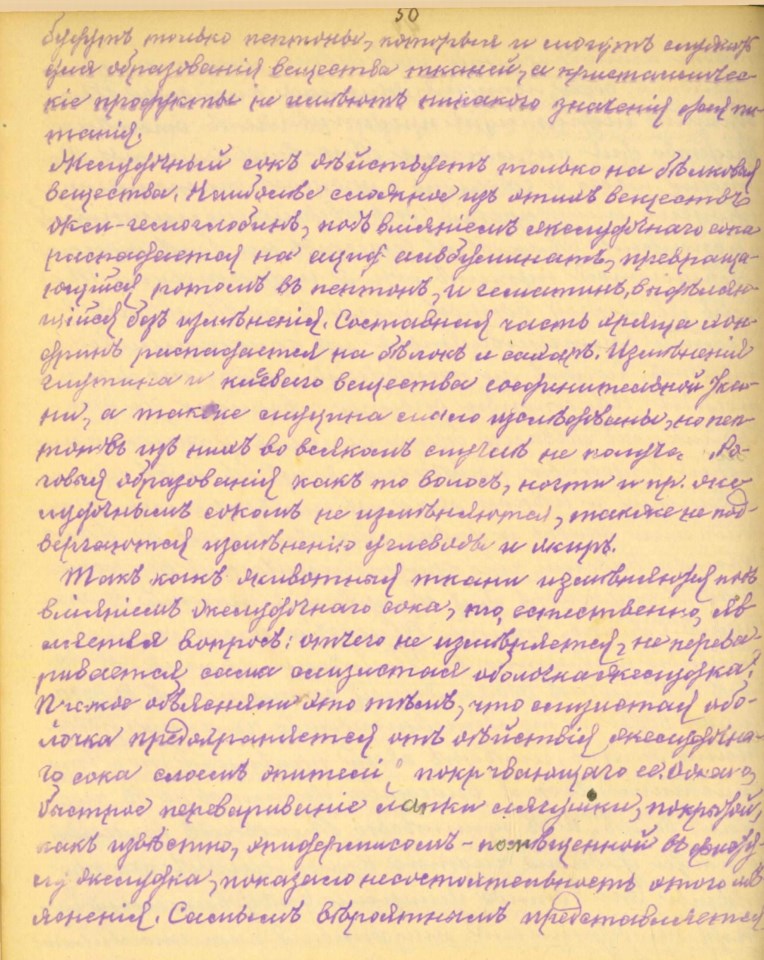 50
будутъ только пептоны, которые и могутъ служить
для образованія вещества тканей, а кристалличес-
кіе продукты не имѣютъ никакого значенія для пи-
танія.
Желудочный сокъ дѣйствуетъ только на бѣлковыя
вещества. Наиболѣе сложное изъ этихъ веществъ
окси-гемоглобинъ, подъ вліяніемъ желудочнаго сока
распадается на ацид-альбуминатъ, превраща-
ющійся потомъ въ пептонъ, и гематинъ, выдѣляю-
щійся безъ измѣненія. Составная часть хряща хон-
дринъ распадается на бѣлокъ и сахаръ. Измѣненія
глутина и клеевого вещества соединительной тка-
ни, а также муцина мало изслѣдованы, но пеп-
тоновъ изъ нихъ во всякомъ случаѣ не получе. Ро-
говыя образованія какъ то волосъ, ногти и пр. же-
лудочнымъ сокомъ не измѣняются, также не под-
вергаются измѣненію углеводы и жиръ.
Такъ какъ животныя ткани измѣняются подъ
вліяніемъ желудочнаго сока, то, естественно, яв-
ляется вопросъ: отчего не измѣняется, не перева-
ривается сама слизистая оболочка желудка?
Прежде объясняли это тѣмъ, что слизистая обо-
лочка предохраняется отъ дѣйствія желудочна-
го сока слоемъ эпителія покрывающаго ее. Однако,
быстрое перевариваніе лапки лягушки, покрытой,
какъ извѣстно, эпидермисомъ - помѣщенной въ фисту-
лу желудка, показало несостоятельность этого объ
ясненія. Самымъ вѣроятнымъ представляется